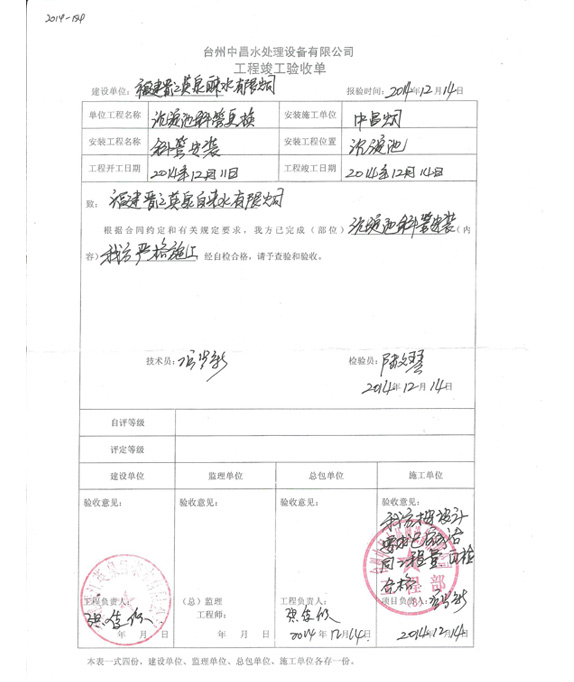 2014-184
台州中昌水处理设备有限公司
工程竣工验收单
建设单位：福建晋江英泉自来水有限公司 报验时间：2014年12月14日
单位工程名称 沉淀池斜管更换 安装施工单位 中昌公司
安装工程名称 斜管安装 安装工程位置 沉淀池
工程开工日期 2014年12月11日 工程竣工日期 2014年12月14日
致：福建晋江英泉自来水有限公司
根据合同约定和有关规定要求，我方已完成（部位）沉淀池斜管安装（内
容）我方严格施工，经自检合格，请予查验和验收。
技术员： 检验员：
2014年12月14日
自评等级
评定等级
建设单位 监理单位 总包单位 施工单位
验收意见： 验收意见： 验收意见： 验收意见：
我方按设计
要求已完成合
同工程量 自检
合格
工程负责人： （总）监理 工程负责人： 项目负责人：
工程师：
年 月 日 年 月 日 2014年12月14日 2014年12月14日
本表一式四份，建设单位、监理单位、总包单位、施工单位各存一份。